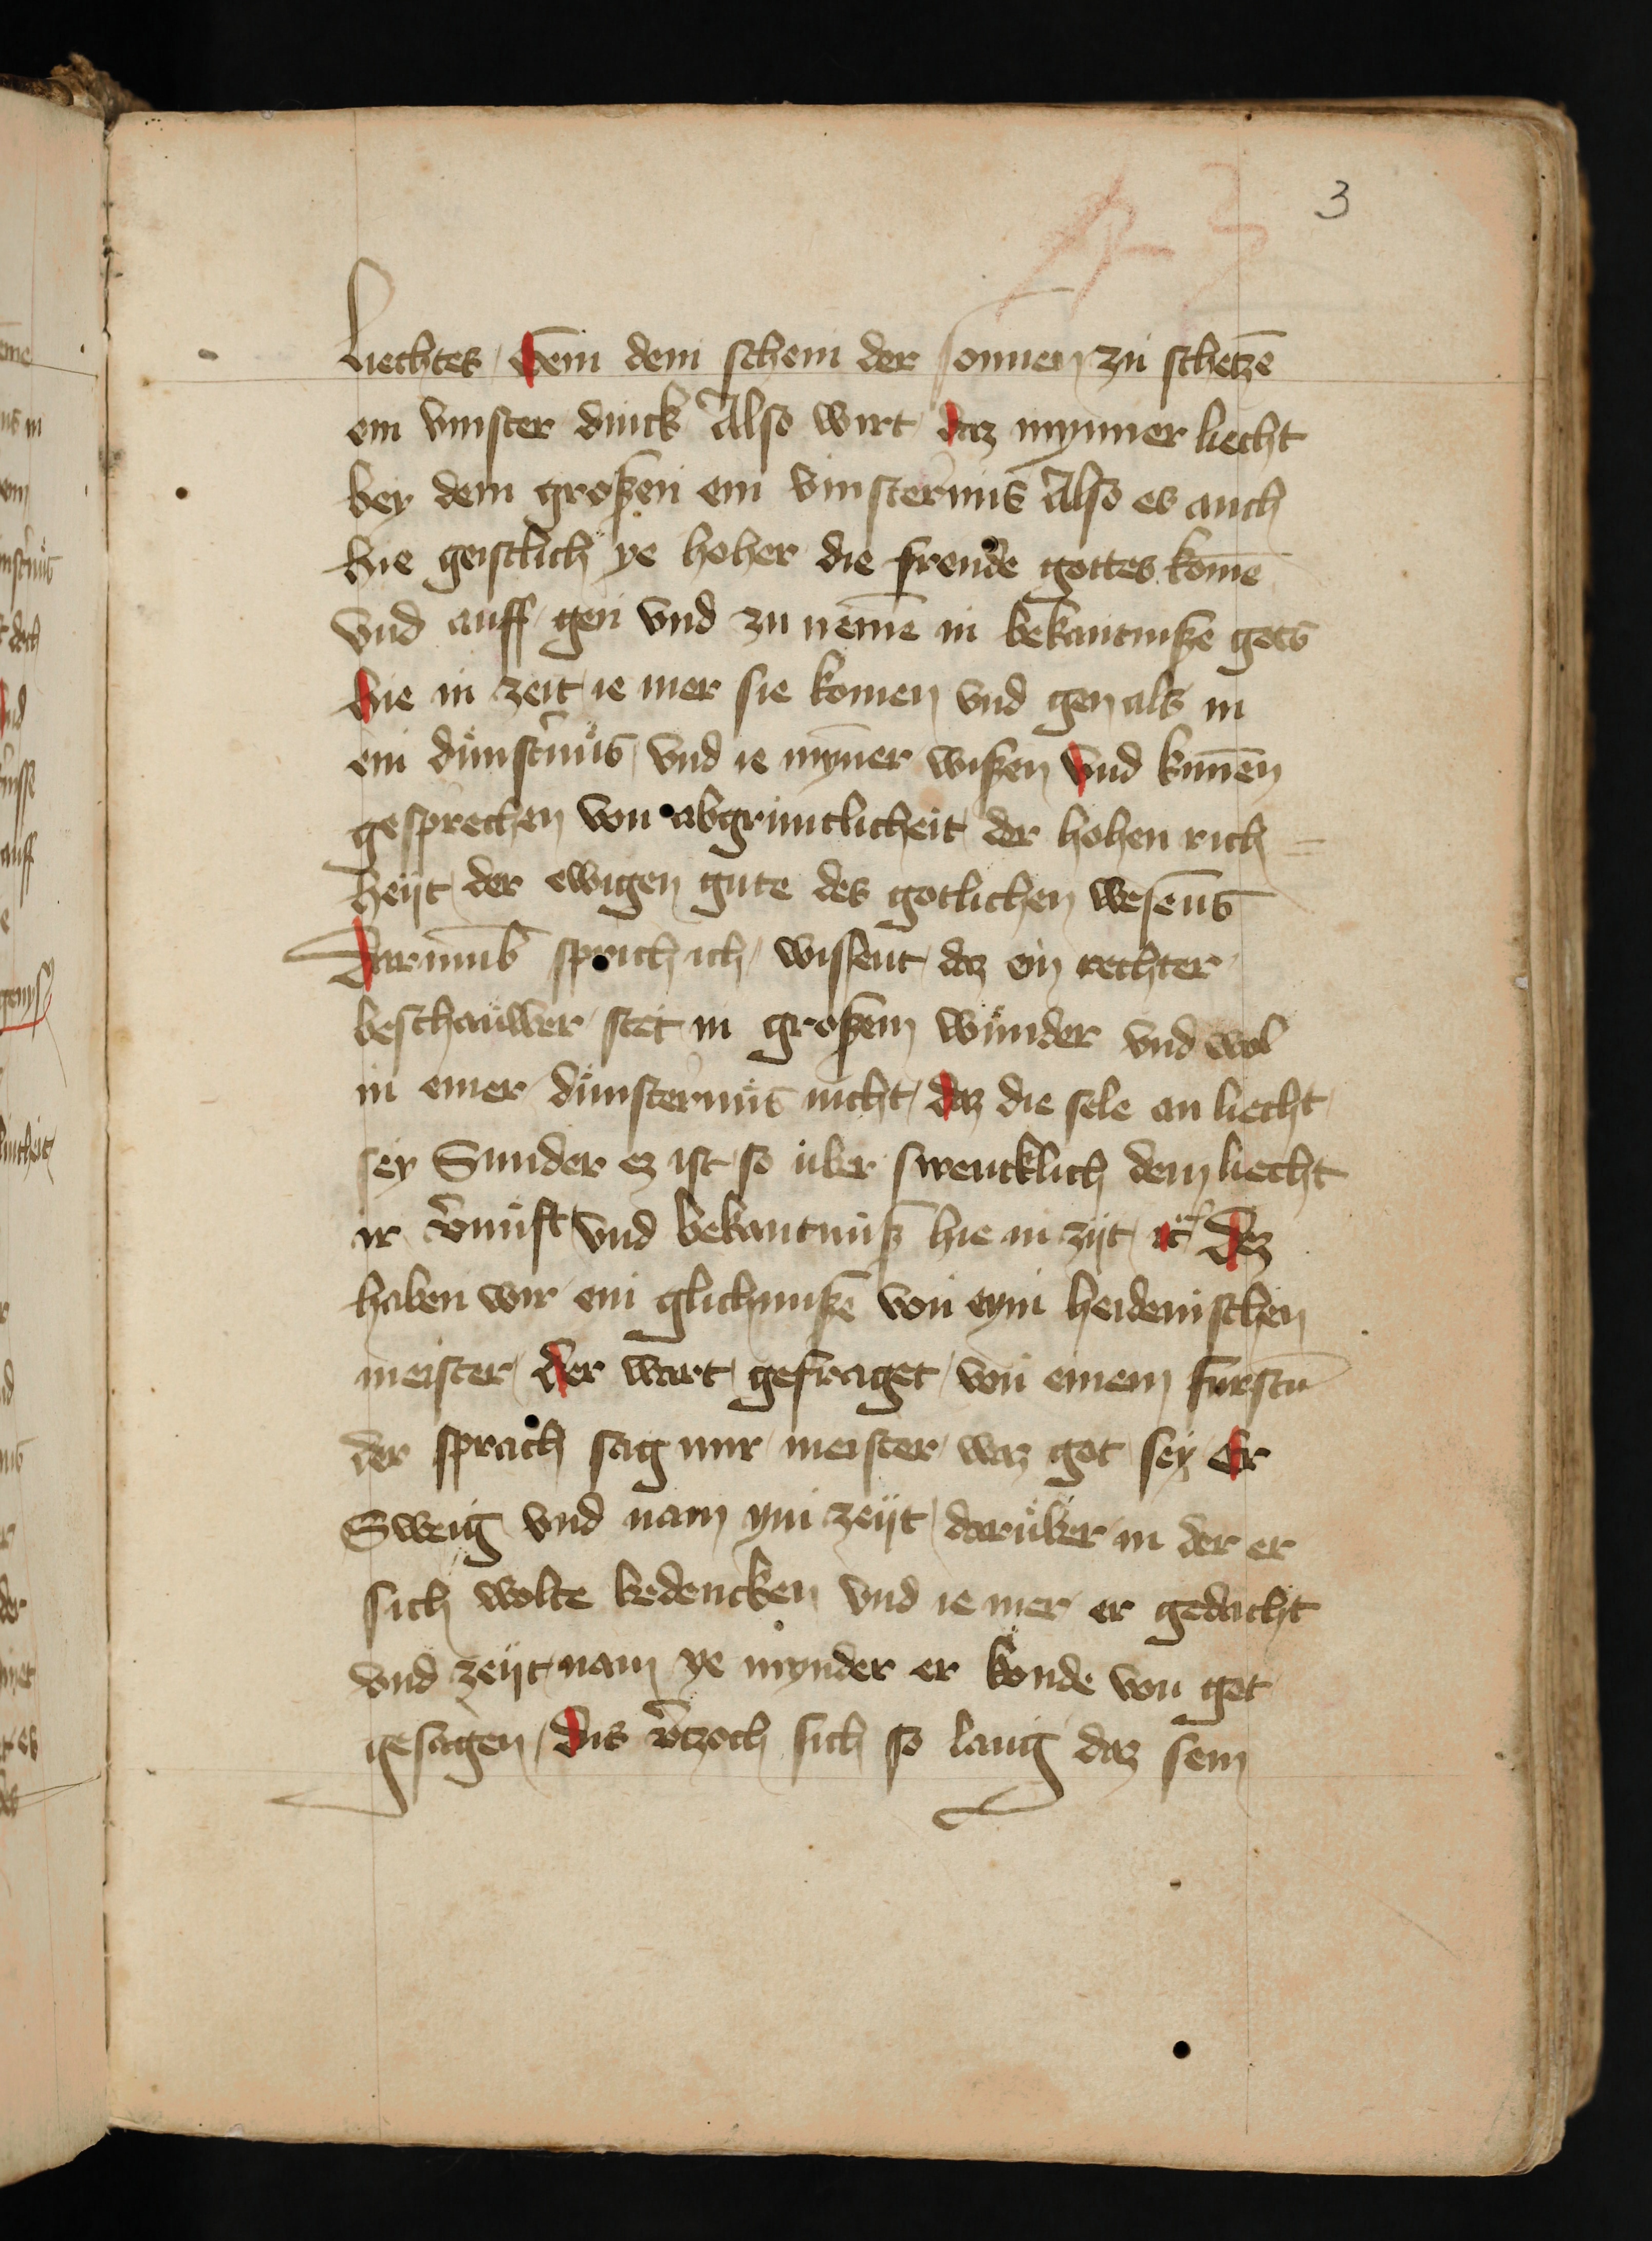 3
liechtes dem dem schein der sonnen zu schetzē
ein vinster dinck Also wirt daz mynner liecht
bey dem großen ein vinsternus Also es auch
hie geistlich ye hoher die frende gottes komē
vnd auff gen vnd zu nemē in bekantnuße gots
hie in zeit ie mer sie komen vnd gen als in
ein dünsternüs vnd ie myner wißen vnd kunnen
gesprechen von abgruntlicheit der hohen rich
heyt der ewigen gute des gotlichen wesens
Darumb sprich ich wissent daz ein rechter
beschauwer stet in großem wunder vnd wol
in einer dünsternüs nicht daz die sele an liecht
sey Sunder ez ist so über swencklich dem liecht
ir v̄nuft vnd bekantnuß hie in zijt rc Dez
haben wir ein glichnuße von eym heidenischen
meister der wart gefraget von einem fursten
der sprach sag mir meister waz got sey Er
Sweig vnd nam ym zeijt darüber in der er
sich wolte bedencken vnd ie mer er gedacht
vnd zeijt nam ye mynder er konde von got
gesagen Dis v̄tzoch sich so lang daz sein